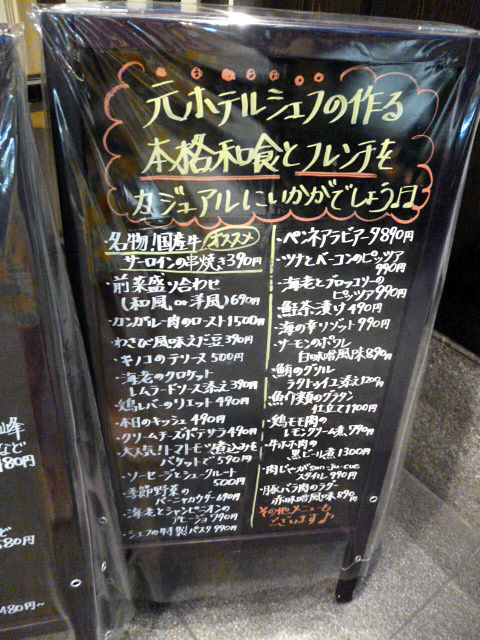 元ホテルシェフの作る
本格和食とフレンチを
カジュアルにいかがでしょう♫
・名物!国産牛 オススメ
サーロインの串焼き390円
・前菜盛り合わせ
(和風 or 洋風)690円
・カンガルー肉のロースト1500円
・わさび風味えだ豆390円
・キノコのテリーヌ500円
・海老のクロケット
レムラードソース添え390円
・鶏レバーのリエット490円
・本日のキッシュ490円
・クリームチーズポテサラ490円
・大人気!トマトモツ煮込みを
バケットで590円
・ソーセージとシュークルート
500円
・季節野菜の
バーニャカウダー690円
・海老とシャンピニオンの
アヒージョ790円
・シェフの特製パスタ990円
・ペンネアラビアータ890円
・ツナとベーコンのピッツァ
990円
・海老とブロッコリーの
ピッツァ990円
・鮭茶漬け490円
・海の幸リゾット990円
・サーモンのポワレ
白味噌風味890円
・鮪のグリル
ラタトゥイユ添え1200円
・魚介類のグラタン
仕立て1100円
・鶏モモ肉の
レモンクリーム煮790円
・牛ホホ肉の
黒ビール煮1300円
・肉じゃがson-ju-cue
スタイル990円
・豚バラ肉のラグー
赤味噌風味890円
その他メニューも
ございます♪
峰
など
480円
ど
580円
480円~